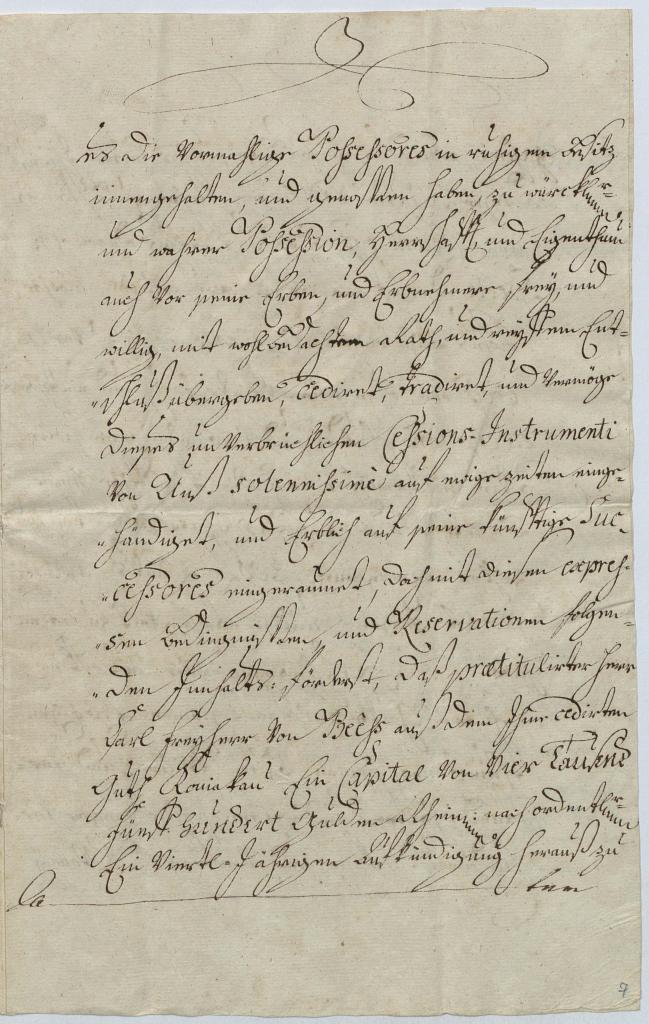 es die Vormahlige Possessores in ruhigem Besitz
innengehalten, und genossen haben, zu würckl:r
und wahrer Possession, Herrschafft, und Eigenthum
auch Vor seine Erben, und Erbnehmere frey, und
willig, mit wohlbedachtem Rath, und reyffem Ent-
schluß übergeben, cediret, tradiret, und Vermöge
dieses unVerbrüchlichen Cessions-Instrumenti
Von Unß solennissime auf ewige zeiten einge-
händiget, und Erblich auf seine künfftige Suc-
cessores eingeraumet, doch mit diesen expres-
sen Bedingnissen, und Reservationen folgen-
den Innhalts: förderst, daß praetitulirter Herr
Carl Freyherr Von Beess auß dem Ihme cedirten
Guth Koniakau Ein Capital Von Vier Tausend
Fünf hundert Gulden Rhein: nach ordentl:r
Ein Viertl-Jährigen aufkündigung herauß zu